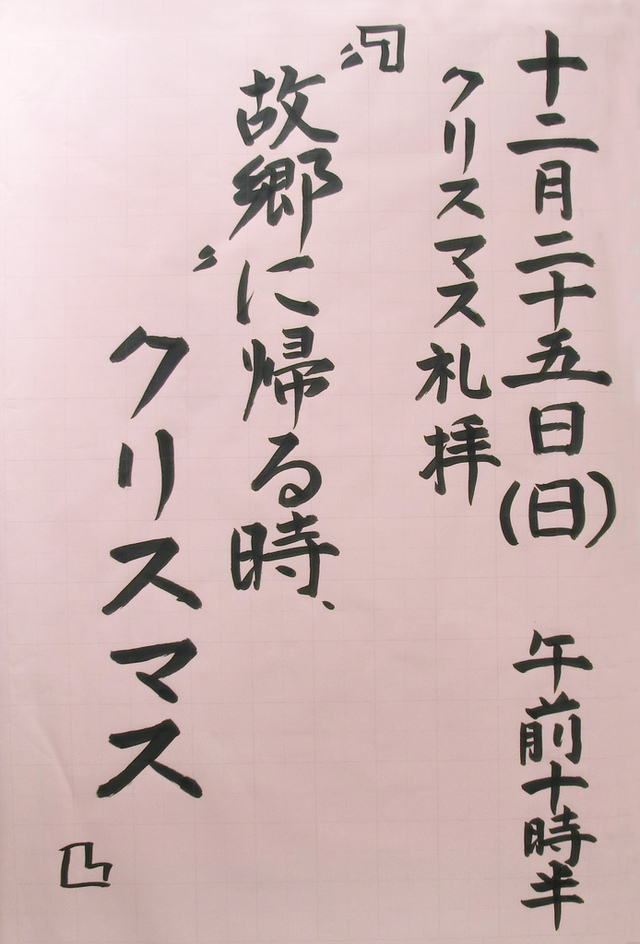 十二月二十五日(日) 午前十時半
クリスマス礼拝
『〝故郷に帰る時、〟
クリスマス』